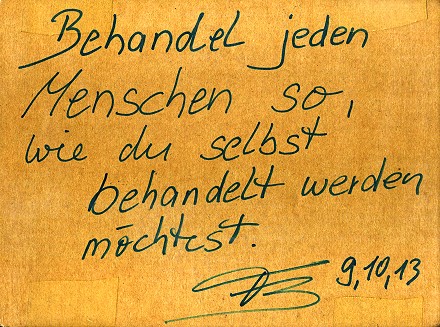 Behandel jeden
Menschen so,
wie du selbst
behandelt werden
möchtest.
9,10,13